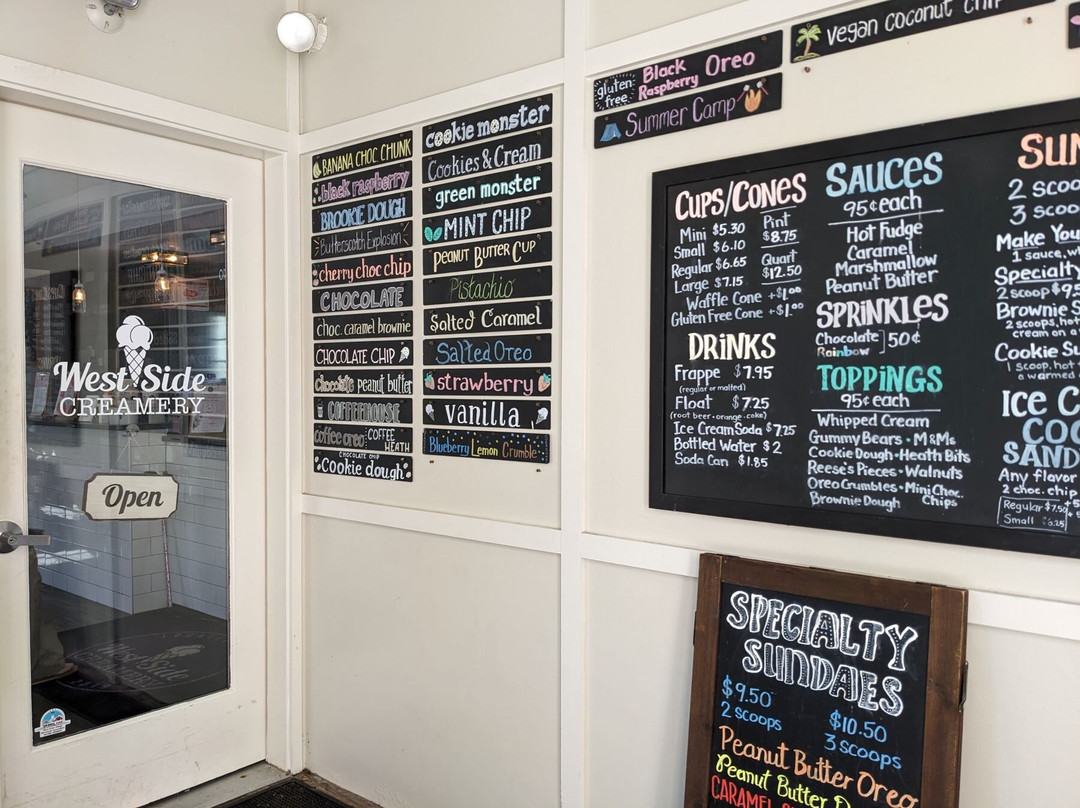 West Side
CREAMERY
Open
BANANA CHOC CHUNK
black raspberry
BROOKIE DOUGH
Butterscotch Explosion
cherry choc chip
CHOCOLATE
choc. caramel brownie
CHOCOLATE CHIP
chocolate peanut butter
COFFEEHOUSE
coffee oreo COFFEE HEATH
CHOCOLATE CHIP
Cookie dough
cookie monster
Cookies & Cream
green monster
MINT CHIP
PEANUT BUTTER CUP
Pistachio
Salted Caramel
Salted Oreo
strawberry
vanilla
Blueberry Lemon Crumble
gluten free Black Raspberry Oreo
Summer Camp
vegan coconut chip
CUPS/CONES
Mini $5.30
Small $6.10
Regular $6.65
Large $7.15
Pint
$8.75
Quart
$12.50
Waffle Cone +$1.00
Gluten Free Cone +$1.00
DRINKS
Frappe $7.95
(regular or malted)
Float $7.25
(root beer · orange · coke)
Ice Cream Soda $7.25
Bottled Water $2
Soda Can $1.85
SAUCES
95¢ each
Hot Fudge
Caramel
Marshmallow
Peanut Butter
SPRINKLES
Chocolate
Rainbow
50¢
TOPPINGS
95¢ each
Whipped Cream
Gummy Bears · M&Ms
Cookie Dough · Heath Bits
Reese's Pieces · Walnuts
Oreo Crumbles · Mini Choc. Chips
Brownie Dough
SUN
2 scoo
3 scoo
Make You
1 sauce, wh
Specialty
2 scoop $9.5
Brownie S
2 scoops, hot
cream on a
Cookie Su
1 scoop, hot
a warmed
ICE C
COO
SAND
Any flavor
2 choc. chip
Regular $7.50
Small
SPECIALTY
SUNDAES
$9.50
2 scoops
$10.50
3 scoops
Peanut Butter Oreo
Peanut Butter
CARAMEL